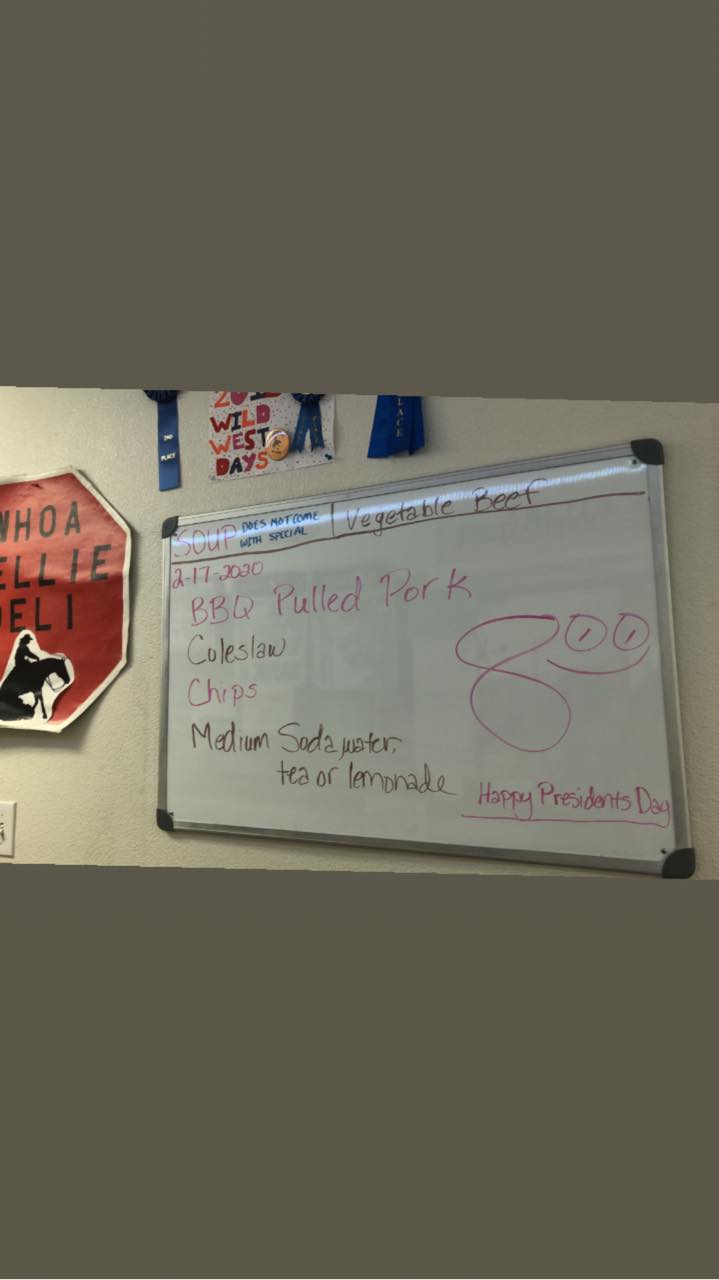 WILD
WEST
DAYS
2ND
PLACE
LACE
WHOA
ELLIE
DELI
SOUP DOES NOT COME WITH SPECIAL | Vegetable Beef
2-17-2020
BBQ Pulled Pork
Coleslaw
Chips
Medium Soda, water,
tea or lemonade
8.00
Happy Presidents Day